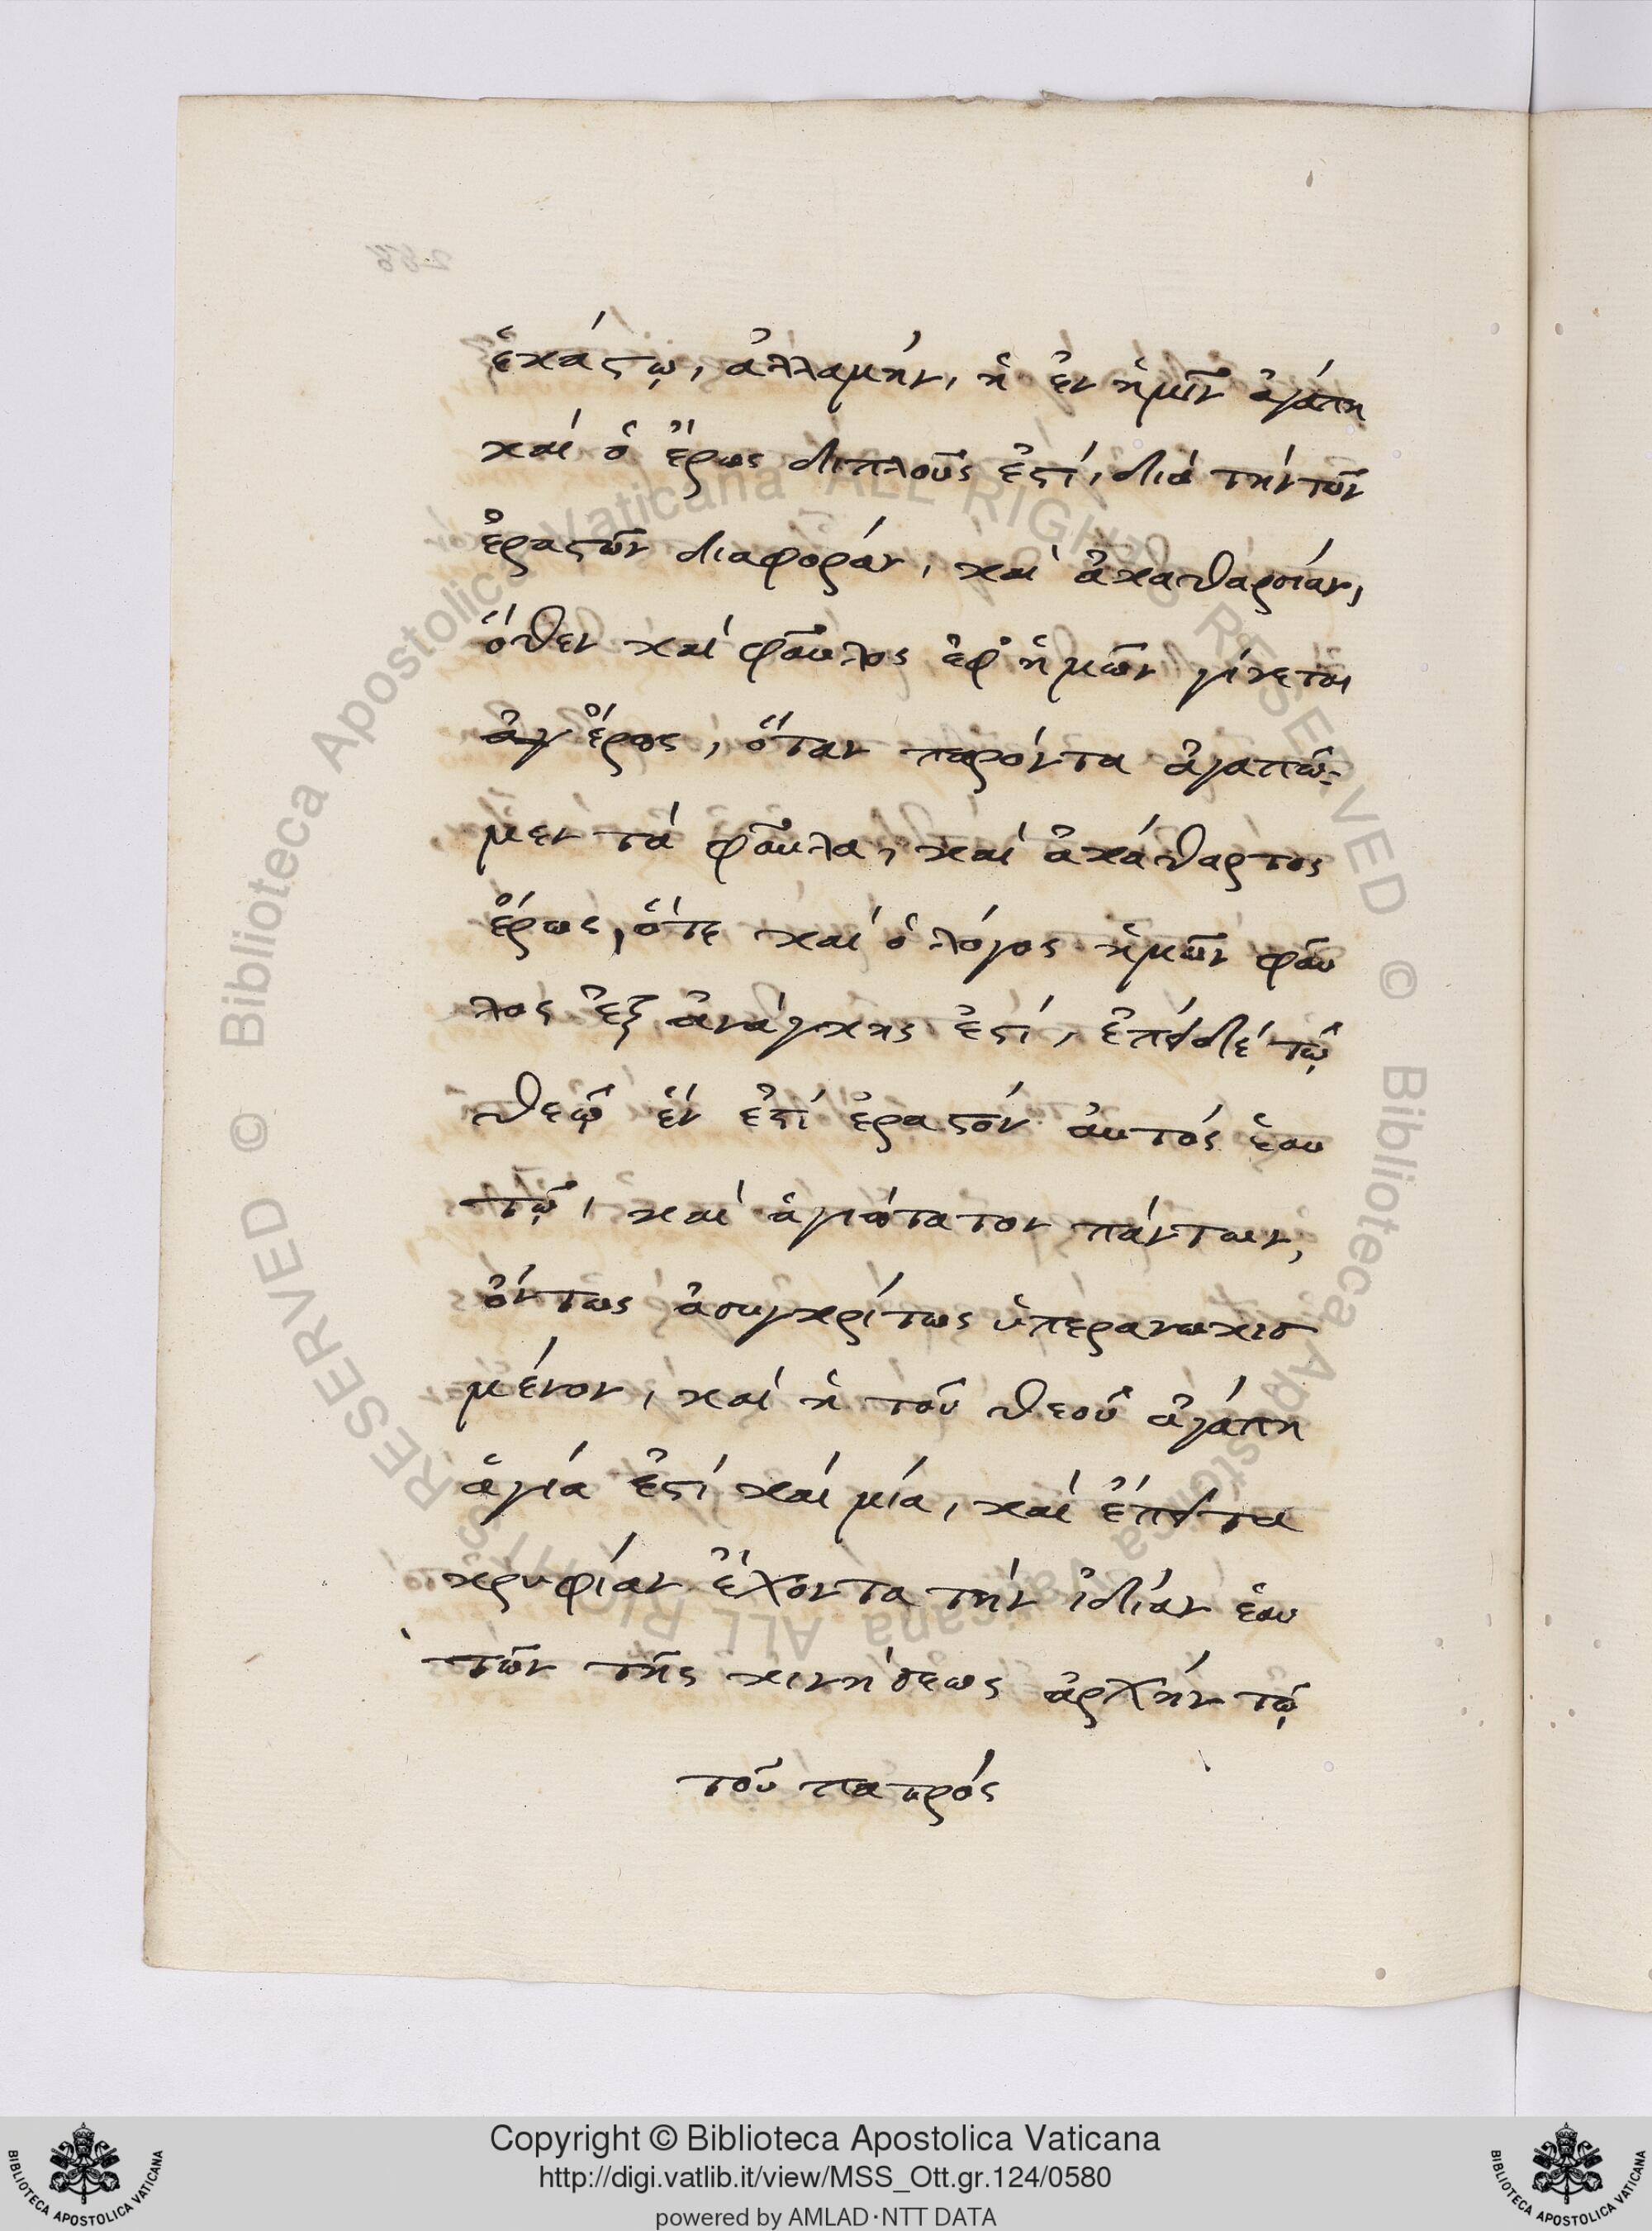 ἑκάστῳ, ἀλλαμήν, ἡ ἐν ἡμῖν ἀγάπη
καί ὁ ἔρως διπλοῦς ἐστί, διά τήν τῶν
ἐραστῶν διαφοράν, καί ἀκαθαρσίαν,
ὅθεν καί φαῦλος ἐφ' ἡμῶν γίνεται
ἔρως, ὅταν παρόντα ἀγαπῶ-
μεν τά φαῦλα, καί ἀκάθαρτος
ἔρως, ὅτε καί ὁ λόγος ἡμῶν φαῦ
λος ἐξ ἀνάγκης ἐστί, ἐπεί δέ τῷ
θεῷ ἕν ἐστί ἐραστόν αὐτός ἑαυ
τῷ, καί ἁγιότατον πάντων,
ὄντως ἀσυγκρίτως ὑπερανωκισ
μένον, καί ἡ τοῦ θεοῦ ἀγάπη
ἁγία ἐστί καί μία, καί
κρυφίαν ἔχοντα τήν ἰδίαν ἑαυ
τῶν τῆς κινήσεως ἀρχήν τῷ
τοῦ πατρός
288
Copyright © Biblioteca Apostolica Vaticana
http://digi.vatlib.it/view/MSS_Ott.gr.124/0580
powered by AMLAD·NTT DATA
BIBLIOTECA APOSTOLICA VATICANA
BIBLIOTECA APOSTOLICA VATICANA
© Biblioteca Apostolica Vaticana ALL RIGHTS RESERVED © Biblioteca Apostolica Vaticana ALL RIGHTS RESERVED